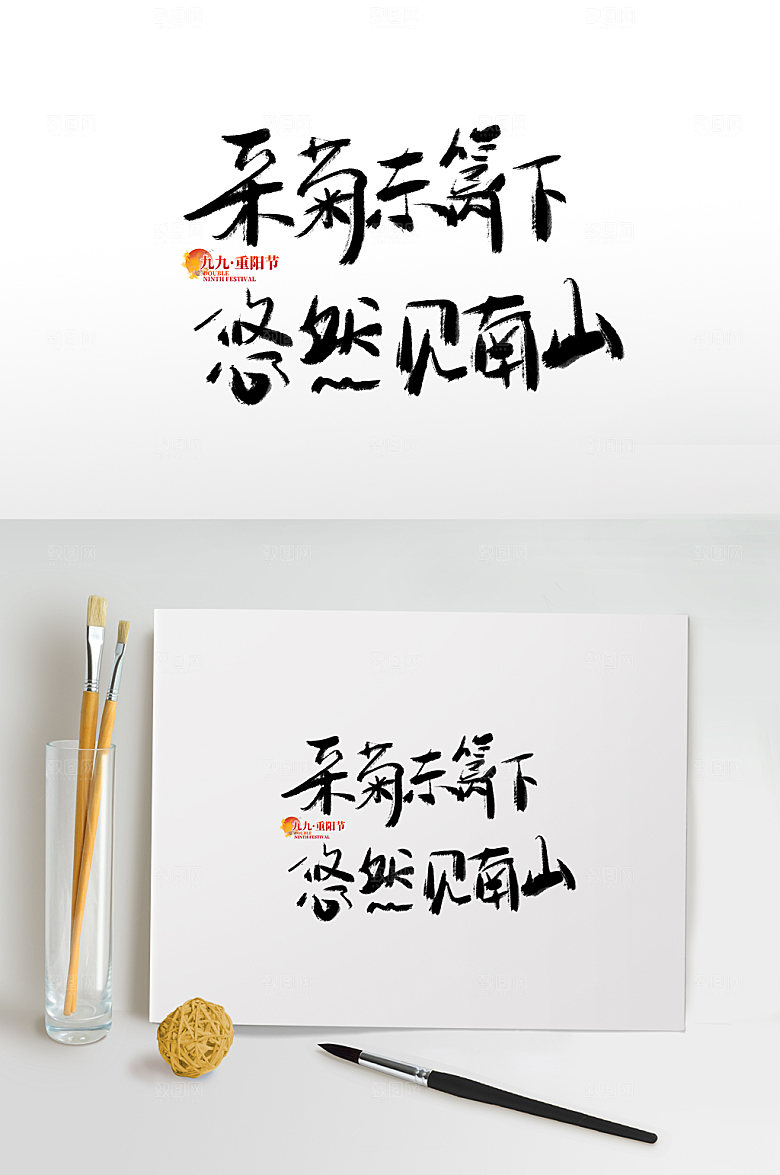 采菊东篱下
九九·重阳节
DOUBLE
NINTH FESTIVAL
悠然见南山
采菊东篱下
九九·重阳节
DOUBLE
NINTH FESTIVAL
悠然见南山